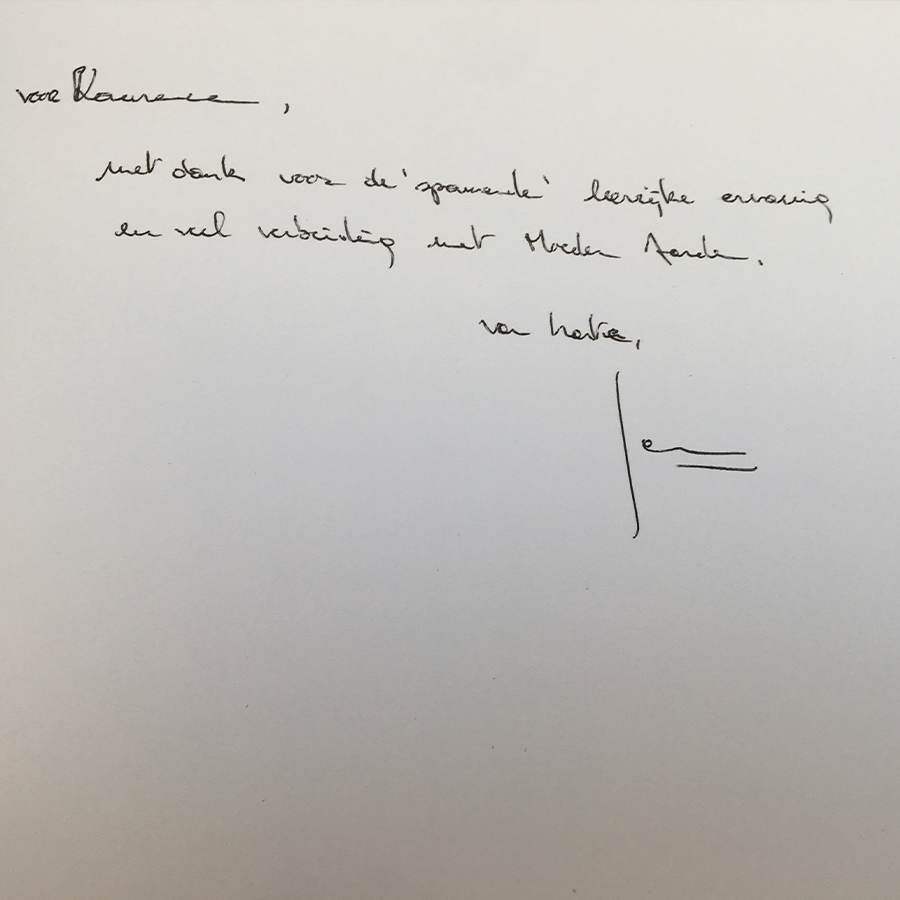 voor Laurence,
met dank voor de 'spannende' leerrijke ervaring
en veel verbinding met Moeder Aarde.
van harte,